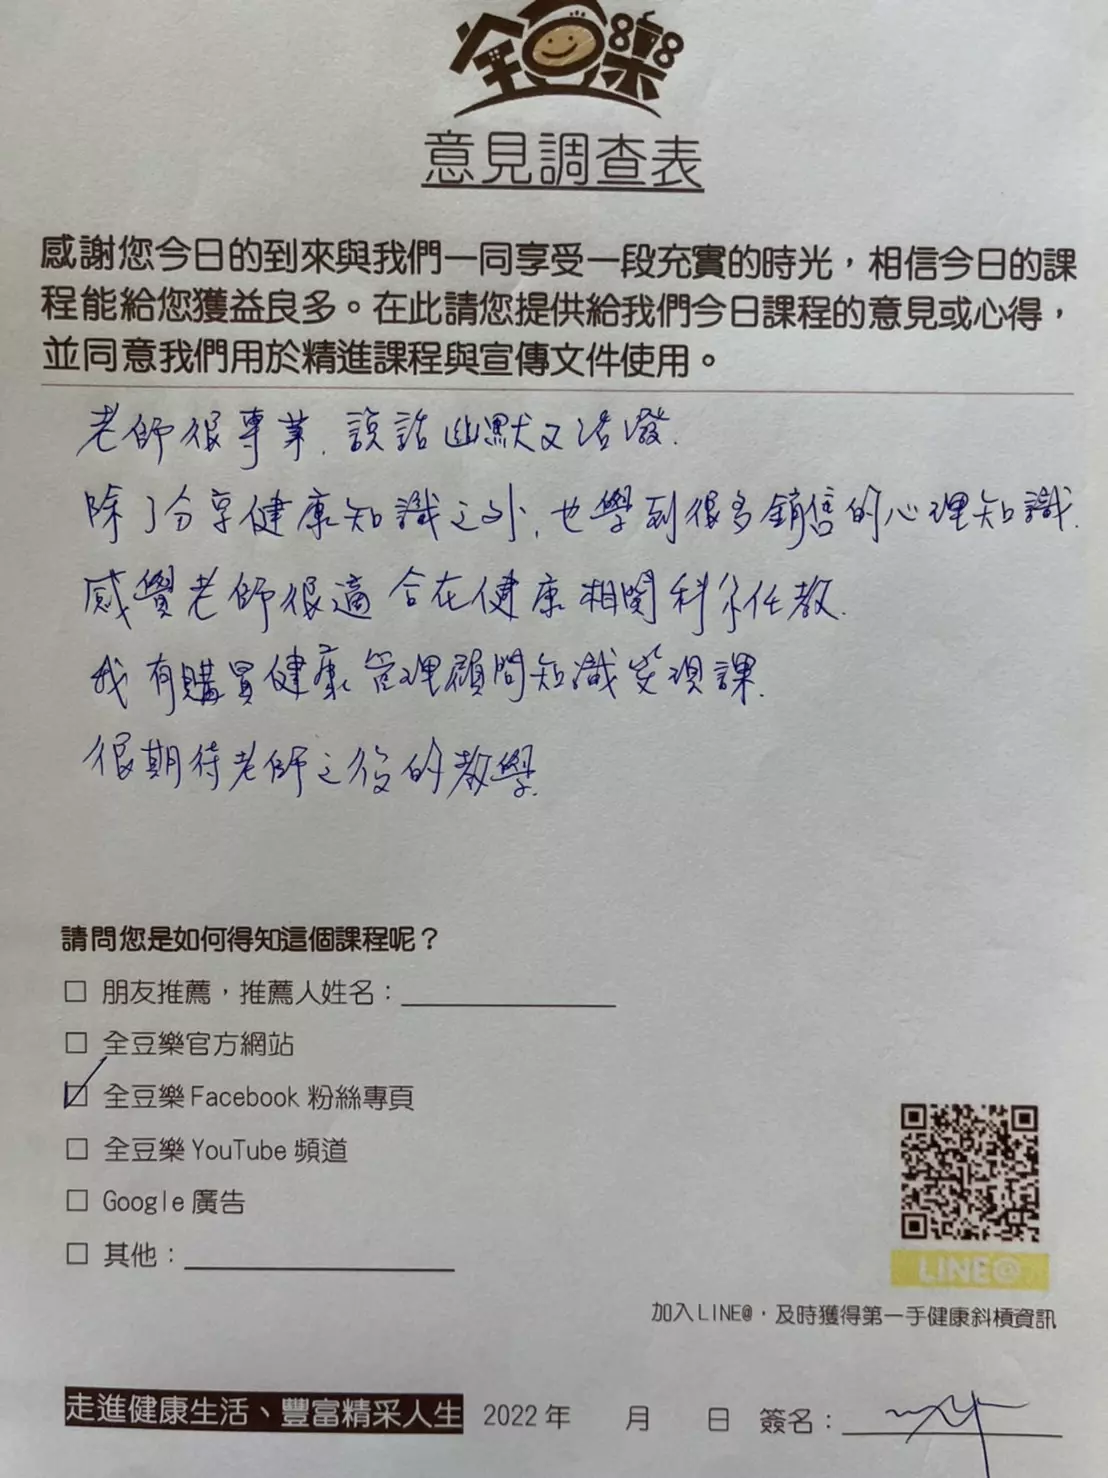 全豆樂
意見調查表
感謝您今日的到來與我們一同享受一段充實的時光，相信今日的課
程能給您獲益良多。在此請您提供給我們今日課程的意見或心得，
並同意我們用於精進課程與宣傳文件使用。
老師很專業，說話幽默又活潑.
除了分享健康知識之外，也學到很多銷售的心理知識.
感覺老師很適合在健康相關科系任教.
我有購買健康管理顧問知識變現課.
很期待老師之後的教學.
請問您是如何得知這個課程呢？
□ 朋友推薦，推薦人姓名：
□ 全豆樂官方網站
☑ 全豆樂 Facebook 粉絲專頁
□ 全豆樂 YouTube 頻道
□ Google 廣告
□ 其他：
LINE@
加入LINE@，及時獲得第一手健康斜槓資訊
走進健康生活、豐富精采人生 2022 年 月 日 簽名：